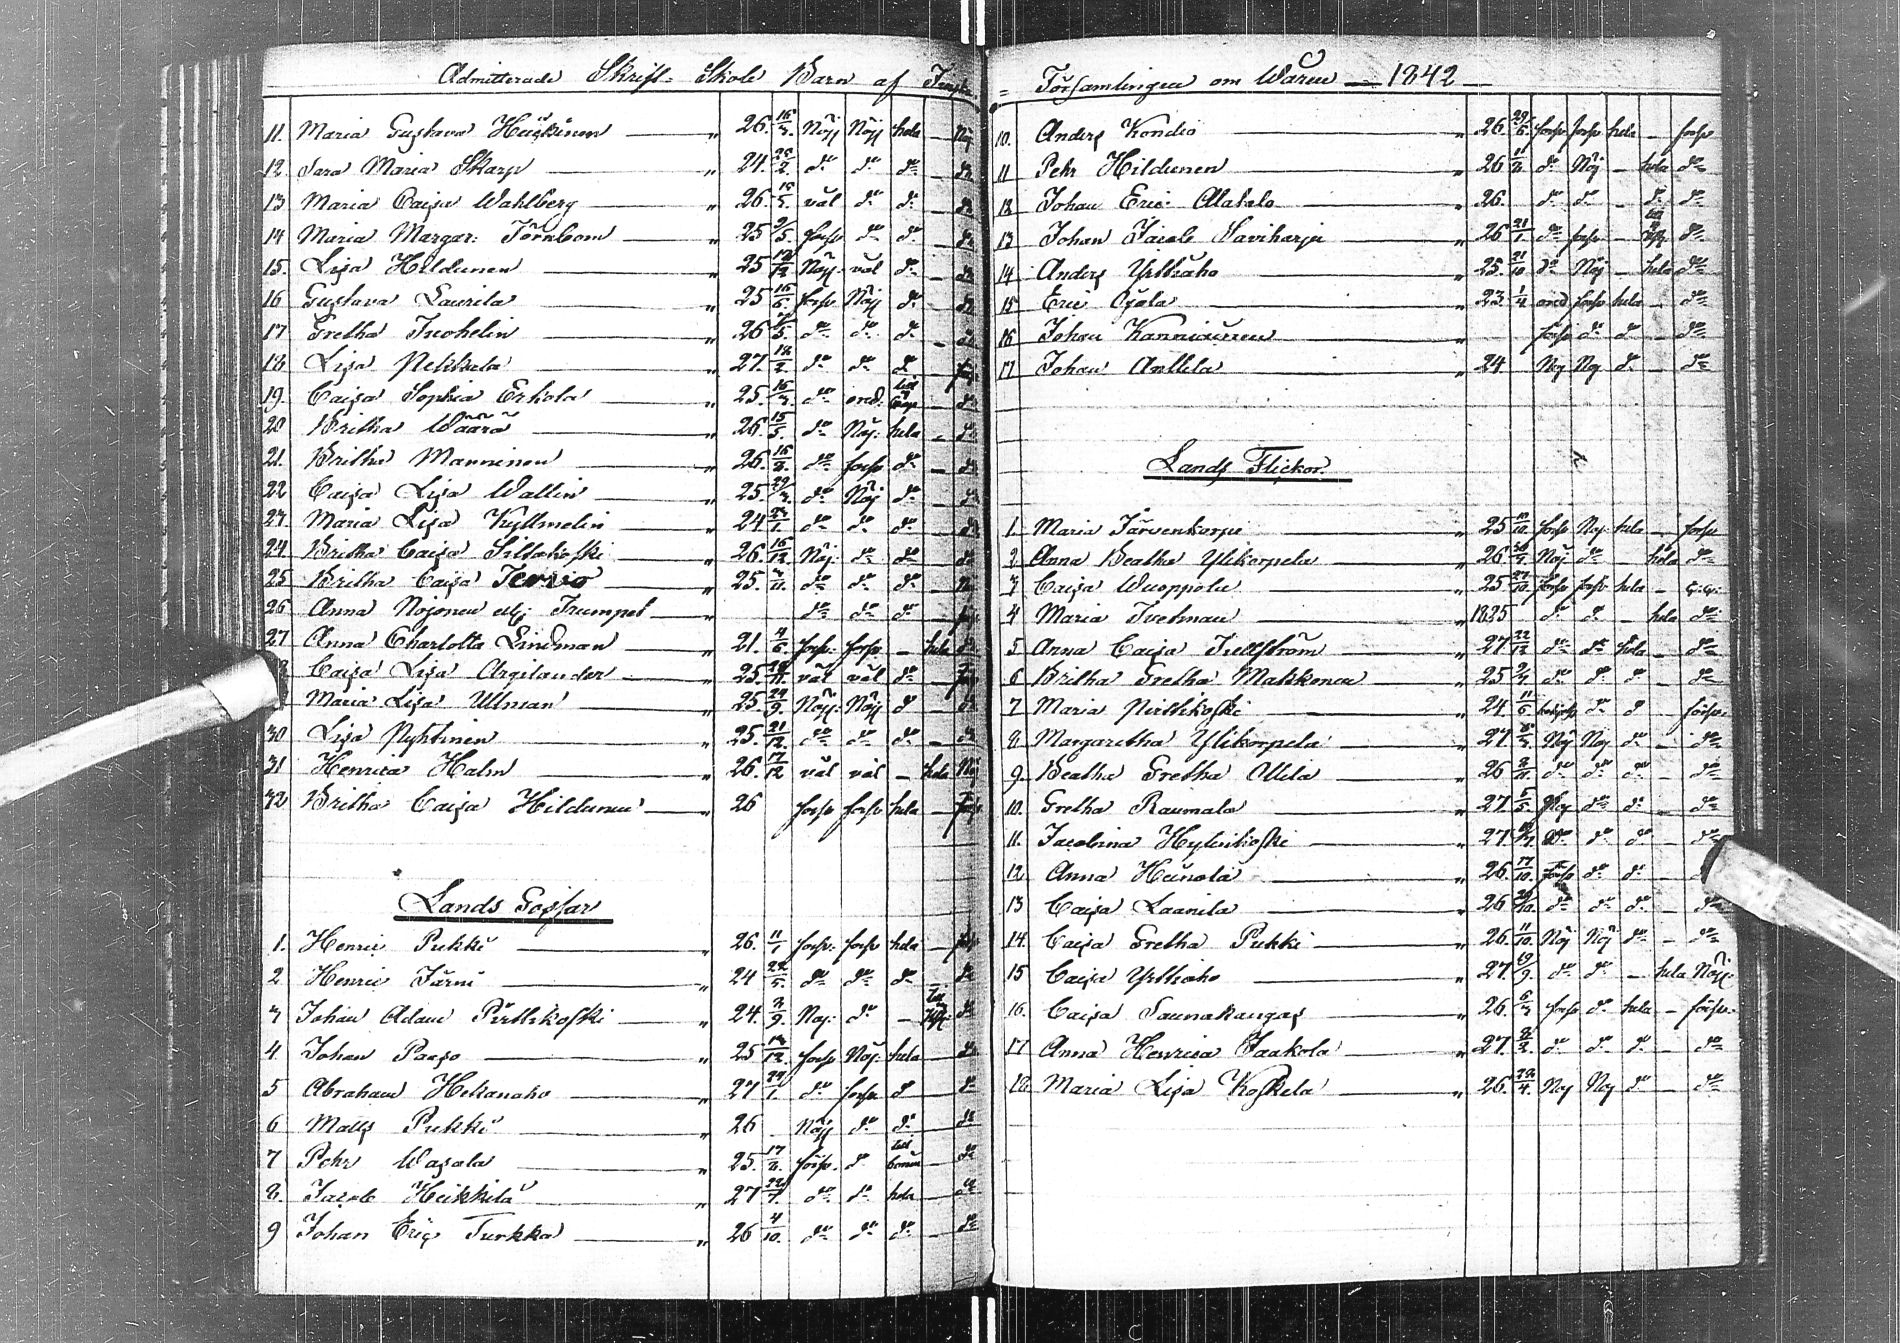 Admitterade Skrift-Skole Barn af
11. Maria Gustava Heiskinen " 26. 16/3. Nöjj Nöjj hela - Nöj
12 Sara Maria Skarp " 24. /2. do do do - do
13 Maria Caisa Wahlberg " 26. /5. väl do do - do
14 Maria Margar: Törnbom " 25 9/5. försv do do - do
15. Lisa Hildunen " 25 12/12 Nöjj. väl do - do
16 Gustava Laurila " 25 16/6. försv Nöjj do - do
17 Gretha Juohelin " 26 /5. do do do - do
18 Lisa Pekkala " 27. 18/2. do do do - försv
19. Caisa Sophia Erkola " 25. 16/3 do ord: - do
20 Britha Wäärä " 26. 15/5. do Nöj. hela - do
21. Britha Manninen " 26. 16/2. do försv do - do
22 Caisa Lisa Wallin " 25. 29/3. do Nöj do - do
23. Maria Lisa Kyllmelin " 24 /1. do do do - do
24. Britha Caisa Siltakoski " 26. 16/12. Nöj. do do - do
25 Britha Caisa Tervo " 25. /11. do do do - Nöj
26 Anna Nojonen ell: Trumpet " do do do - försv
27 Anna Charlotta Lindman " 21. 4/6 försv. försv. - hela do
Caisa Lisa Argilander " 25. /11. väl väl do -
Maria Lisa Ulman " 25 29/9. Nöjj. Nöjj do - do
30 Lisa Pyhtinen " 25. 21/12. do do do - do
31 Henrica Halm " 26. 17/12 väl väl - hela Nöj
32 Britha Caisa Hildunen " 26 försv försv hela - försv
Lands Gossar
1. Henric Pukki " 26. 11/1 försv. försv hela - försv
2 Henric Järni " 24 22/5. do do do do
3 Johan Adam Pirttikoski " 24. 2/9. Nöj. do - do
4 Johan Paaso " 25 13/12. försv Nöj. hela - do
5 Abraham Hekanaho " 27 29/1. do försv do do
6 Matts Pukki " 26 Nöjj do do do
7 Pehr Wasala " 25. 17/2. försv. do - do
8. Jacob Heikkilä " 27 22/7. do do hela - do
9 Johan Eric Turkka " 26 4/10. do do do - do
= Församlingen om Wåren — 1842 —
10. Anders Kondio " 26. 29/5. försv försv hela - försv
11 Pehr Hildunen " 26 11/2 do Nöj - hela do
12 Johan Eric Alatalo " 26. do do - do do
13 Johan Jacob Saviharju " 26 21/1. do försv - do
14 Anders Yrttiaho " 25. 21/10 do Nöj - hela do
15 Eric Ojala " 23 1/4 ord försv hela - do
16 Johan Kanniainen " försv do do - do
17 Johan Anttila " 24 Nöj Nöj do - do
Lands Flickor.
1. Maria Järvenkorpi " 25 /10. försv Nöj. hela - försv
2. Anna Beatha Ylikorpela " 26 /9. Nöj do - hela do
3 Caisa Wuoppola " 25 27/10. försv försv. hela -
4 Maria Ivelman " 1825 do do - hela do
5 Anna Caisa Frellström " 27 22/12 do do hela - do
6 Britha Gretha Makkonen " 25 2/4 do do do - do
7 Maria Pirttikoski " 24. 11/6 do do - försv.
8 Margaretha Ylikorpela " 27 /3. Nöj Nöj do - do
9. Beatha Gretha Ollila " 26 2/11. do do do - do
10. Gretha Raumala " 27. 5/5. Nöj do do - do
11. Jacobina Hylinkoski " 27 do do do - do
12. Anna Heinola " 26. 17/10. försv do do -
13 Caisa Laanila " 26 /10. do do do - do
14. Caisa Gretha Pukki " 26. 11/10. Nöj Nöj do - do
15 Caisa Yrttiaho " 27. 19/9. do do - hela Nöjj.
16. Caisa Saunakangas " 26. 6/3 försv do hela - försv.
17 Anna Henrica Jaakola " 27. 8/2. do do do - do
18. Maria Lisa Koskela " 26. 22/4. Nöj Nöj do - do